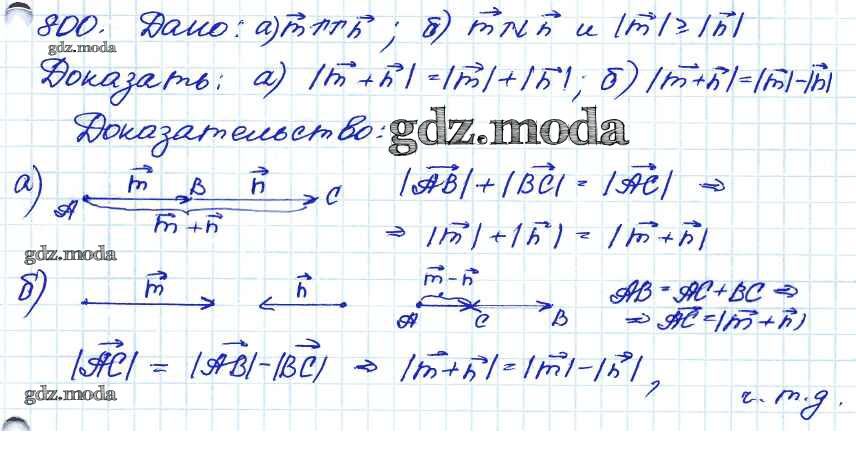 800. Дано: а) m⃗ ↑↑ n⃗ ; б) m⃗ ↑↓ n⃗ и |m⃗| ≥ |n⃗|
gdz.moda
Доказать: а) |m⃗ + n⃗| = |m⃗| + |n⃗|; б) |m⃗ + n⃗| = |m⃗| - |n⃗|
Доказательство: gdz.moda
а) m⃗ B n⃗ |AB⃗| + |BC⃗| = |AC⃗| ⇒
A C
m⃗ + n⃗ ⇒ |m⃗| + |n⃗| = |m⃗ + n⃗|
gdz.moda
б) m⃗ n⃗ m⃗ - n⃗ AB = AC + BC ⇒
A C B ⇒ AC⃗ = |m⃗ + n⃗)
|AC⃗| = |AB⃗| - |BC⃗) ⇒ |m⃗ + n⃗| = |m⃗| - |n⃗|,
gdz.moda ч.т.д.